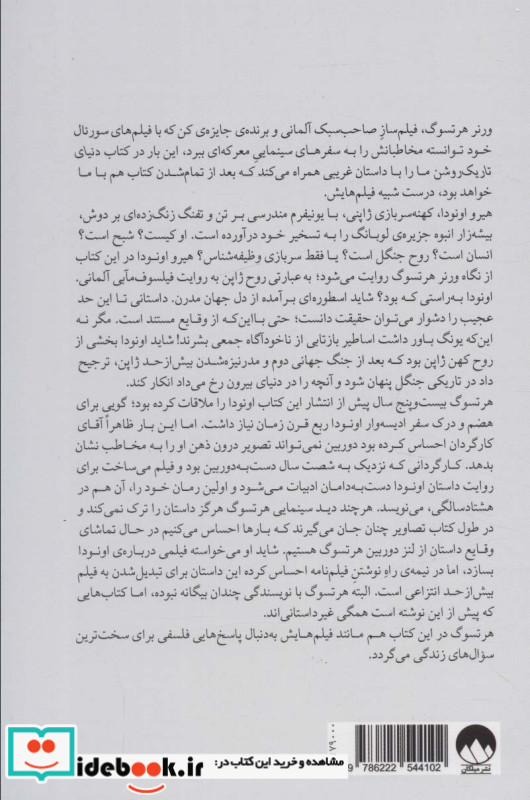 ورنر هرتسوگ، فیلم‌سازِ صاحب‌سبک آلمانی و برنده‌ی جایزه‌ی کن که با فیلم‌های سورئال
خود توانسته مخاطبانش را به سفرهای سینماییِ معرکه‌ای ببرد، این بار در کتاب دنیای
تاریک‌روشن ما را با داستان غریبی همراه می‌کند که بعد از تمام‌شدن کتاب هم با ما
خواهد بود، درست شبیه فیلم‌هایش.
هیرو اونودا، کهنه‌سربازی ژاپنی، با یونیفرم مندرسی بر تن و تفنگ زنگ‌زده‌ای بر دوش،
بیشه‌زار انبوه جزیره‌ی لوبانگ را به تسخیر خود درآورده است. او کیست؟ شبح است؟
انسان است؟ روح جنگل است؟ یا فقط سربازی وظیفه‌شناس؟ هیرو اونودا در این کتاب از
نگاه ورنر هرتسوگ روایت می‌شود؛ به عبارتی روح ژاپن به روایت فیلسوف‌مآبی آلمانی.
اونودا به‌راستی که بود؟ شاید اسطوره‌ای برآمده از دل جهان مدرن. داستانی تا این حد
عجیب را دشوار می‌توان حقیقت دانست؛ حتی با این‌که از وقایع مستند است. مگر نه
این‌که یونگ باور داشت اساطیر بازتابی از ناخودآگاه جمعی بشرند! شاید اونودا بخشی از
روح کهن ژاپن بود که بعد از جنگ جهانی دوم و مدرنیزه‌شدن بیش‌ازحد ژاپن، ترجیح
داد در تاریکی جنگل پنهان شود و آنچه را در دنیای بیرون رخ می‌داد انکار کند.
هرتسوگ بیست‌وپنج سال پیش از انتشار این کتاب اونودا را ملاقات کرده بود؛ گویی برای
هضم و درک سفر ادیسه‌وار اونودا ربع قرن زمان نیاز داشت. اما این بار ظاهراً آقای
کارگردان احساس کرده بود دوربین نمی‌تواند تصویر درون ذهن او را به مخاطب نشان
بدهد. کارگردانی که نزدیک به شصت سال دست‌به‌دوربین بود و فیلم می‌ساخت برای
روایت داستان اونودا دست‌به‌دامان ادبیات می‌شود و اولین رمان خود را، آن هم در
هشتادسالگی، می‌نویسد. هرچند دید سینمایی هرتسوگ هرگز داستان را ترک نمی‌کند و
در طول کتاب تصاویر چنان جان می‌گیرند که بارها احساس می‌کنیم در حال تماشای
وقایع داستان از لنز دوربین هرتسوگ هستیم. شاید او می‌خواسته فیلمی درباره‌ی اونودا
بسازد، اما در نیمه‌ی راهِ نوشتنِ فیلم‌نامه احساس کرده این داستان برای تبدیل‌شدن به فیلم
بیش‌ازحد انتزاعی است. البته هرتسوگ با نویسندگی چندان بیگانه نبوده، اما کتاب‌هایی
که پیش از این نوشته است همگی غیرداستانی‌اند.
هرتسوگ در این کتاب هم مانند فیلم‌هایش به‌دنبال پاسخ‌هایی فلسفی برای سخت‌ترین
سؤال‌های زندگی می‌گردد.
مشاهده و خرید این کتاب در:
idebook.ir
9 786222 544102
نشر میلکان